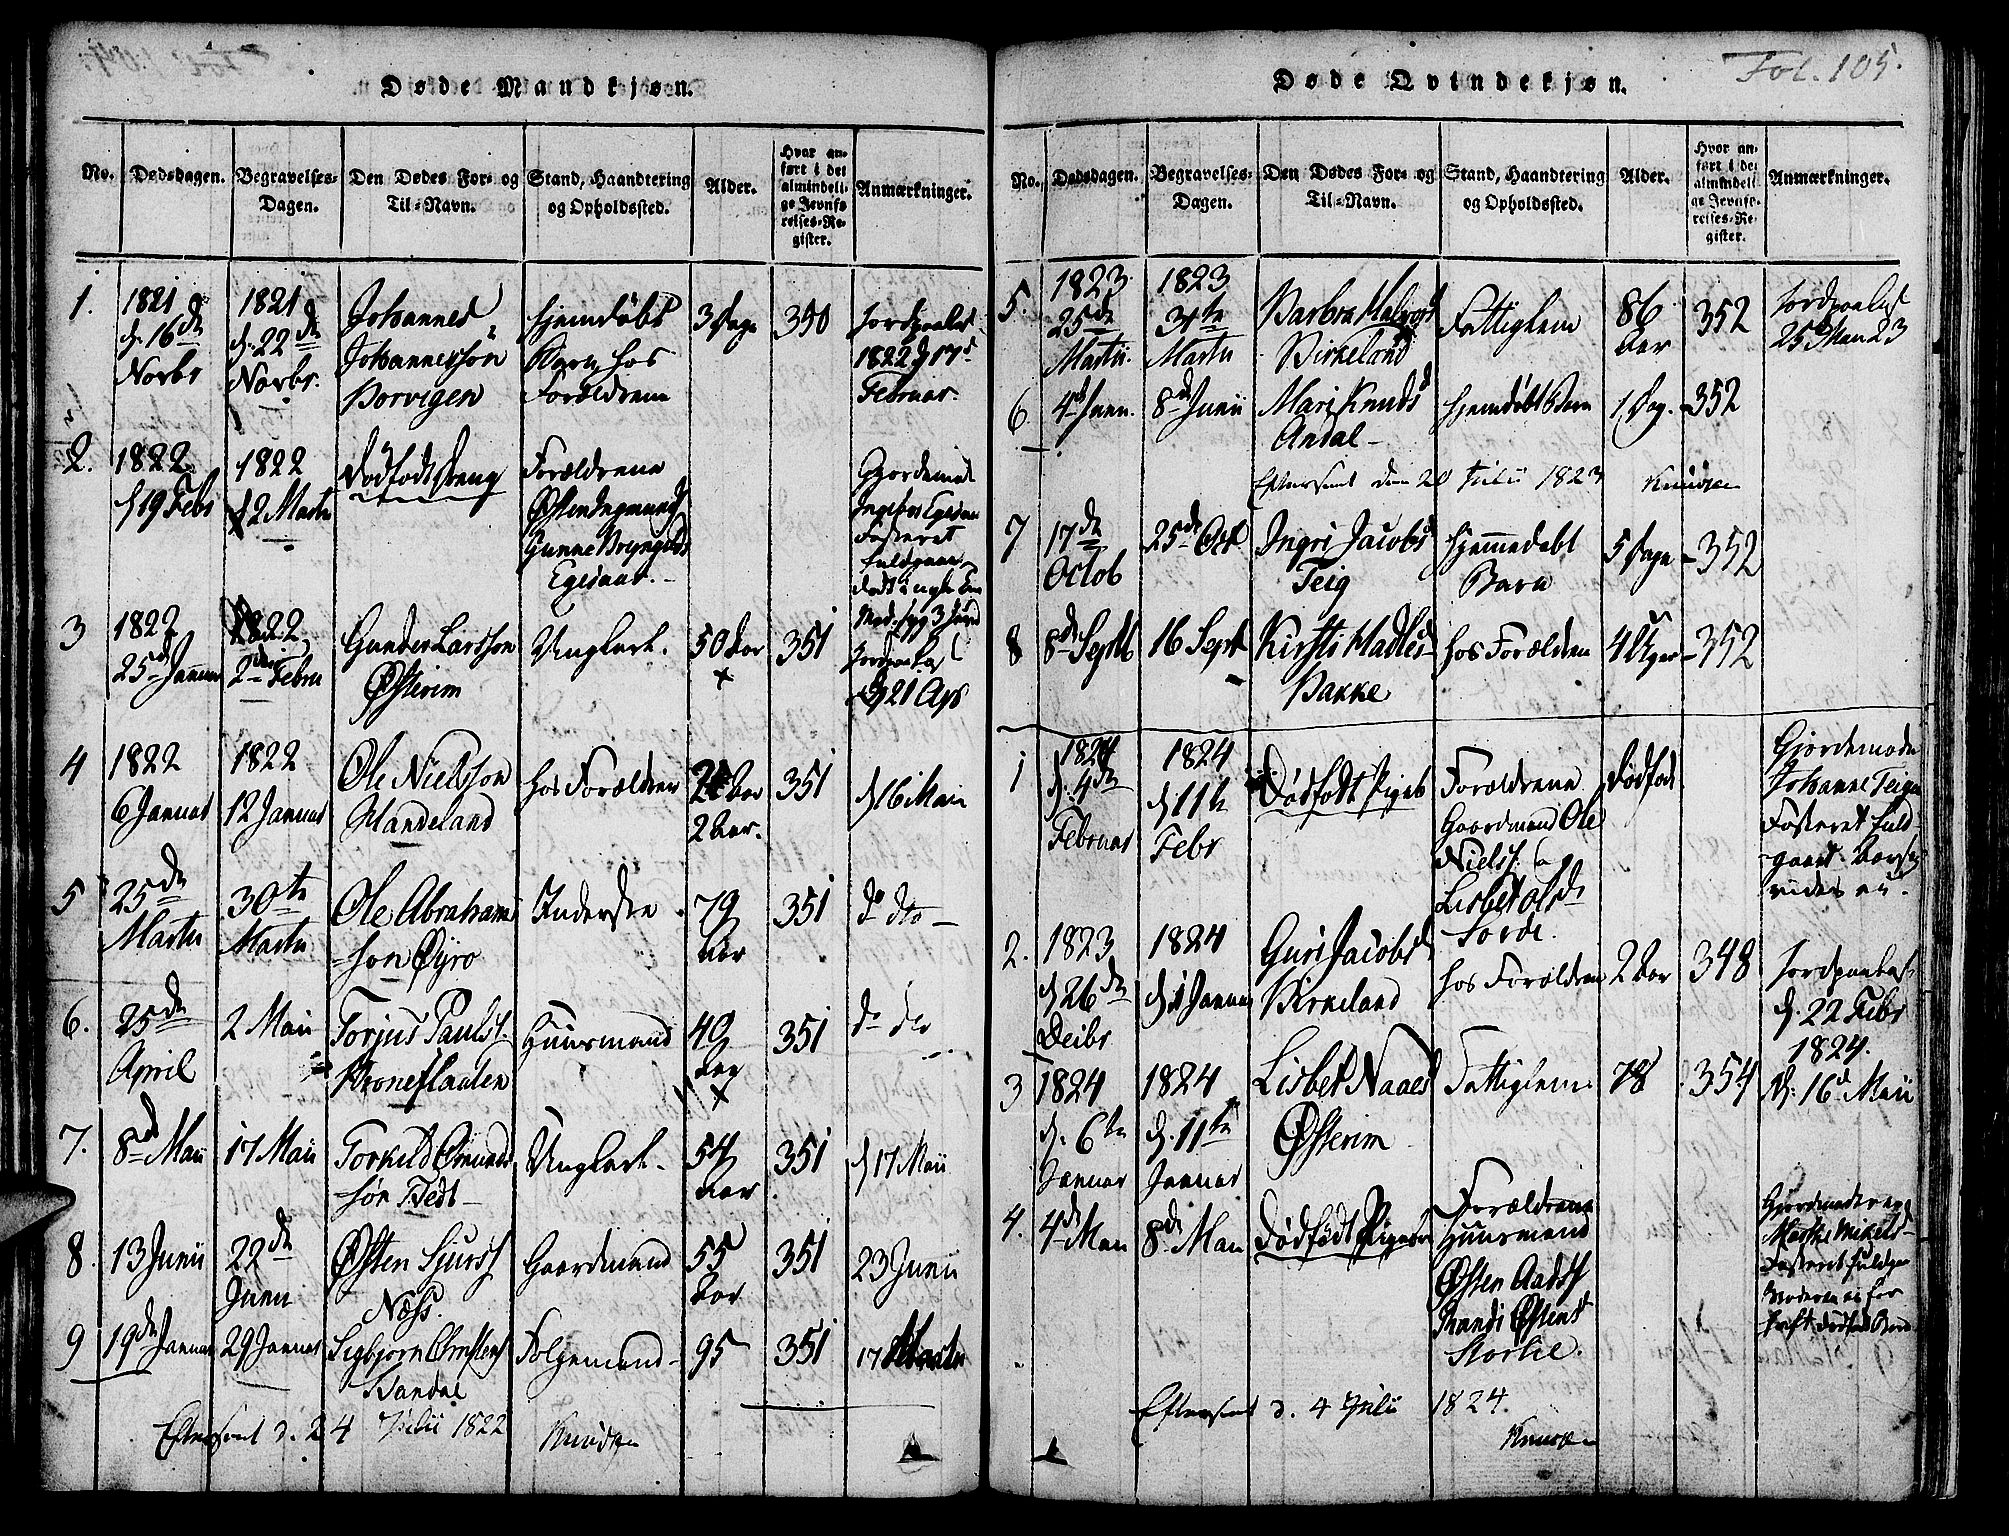 Døde Mandkjøn.
No. Dødsdagen. Begravelses-Dagen. Den Dødes For- og Til-Navn. Stand, Haandtering og Opholdssted. Alder. Hvor anført i det almindelige Jevnførelses-Register. Anmærkninger.
1. 1821 d. 16de Novbr 1821 d. 22de Novbr. Johannes Johannessøn Borvigen hjemdøbt Barn hos Forældrene 3 Dage 350 1822 d 17d Februar.
2. 1822 d 19 Febr 1822 d 2 Martii Dødfødt Dreng Forældrene Østen Egesaar.
3 1822 25de Januar 1822 2den Febru Gunder Larsson Østerim Ungkarl. 50 Aar 351 d 21 Apr
4 1822 6 Januar 1822 12 Januar Ole Nielsson Handeland hos Forældrene 2 Aar. 351 d 16 Maii
5 25de Martii 30te Martii Ole Abrahamsson Øyro Inderste 79 Aar 351 do dto
6. 25de April 2 Maii Torjus Pauls. Kroneflaaten Huusmand 40 Aar 351 do dto
7. 8de Maii 17 Maii Torkild Omundssøn Tedt Ungkarl. 54 Aar 351 d 17 Maii
8. 13 Junii 22de Junii Østen Sjurss Næss. Gaardmand 55 Aar 351 23 Junii
9 19de Januar 29 Januar Segbjørn Christens Bandal Folgemand 95 351 17 Martii
Efterseet d. 24 Julii 1822 Knudsen
Fol. 105.
Døde Qvindekjøn.
No. Dødsdagen. Begravelses-Dagen. Den Dødes For- og Til-Navn. Stand, Haandtering og Opholdssted. Alder. Hvor anført i det almindelige Jevnførelses-Register. Anmærkninger.
5. 1823 25de Martii. 1823 31te Martii Barbra Birkeland Fattiglem 86 Aar 352
6 4de Junii. 8de Junii Mari Knudsd Andal hjemdøbt Barn 1 Dag. 352
Efterseet den 20 Julii 1823 Knudsen
7 17de Octob 25de Oct Ingri Jacobsd Teig hjemmedøbt Barn 5 Dage 352
8 8de Septb 16 Sept Kirsti Madlesd Bakke hos Forældrene 4 Uger 352
1 1824 d. 4de Februar 1824 d 11te Febr Dødfødt Pigeb Forældrene Gaardmand Ole Niels. Lisbet Olsd Sorde. Dødfødt Gjordemoder Johanne Teigen Fosteret fuldgaaet.
2. 1823 d 26de Decbr 1824 d 1 Januar Guri Jacobsd Birkeland hos Forældrene 2 Aar 348 d. 22 Febr 1824.
3 1824 d. 6te Januar 1824 d. 11te Januar Lisbet Naaesd Østerim Fattiglem. 78 354 d. 16d Maii
4. 4de Maii 8de Maii Dødfødt Pigeb Forældrene Huusmand Østen Aadss Randi Østensd Gjordemoder Fosteret fuldgaaet
Efterseet d. 4 Julii 1824.
Knudsen